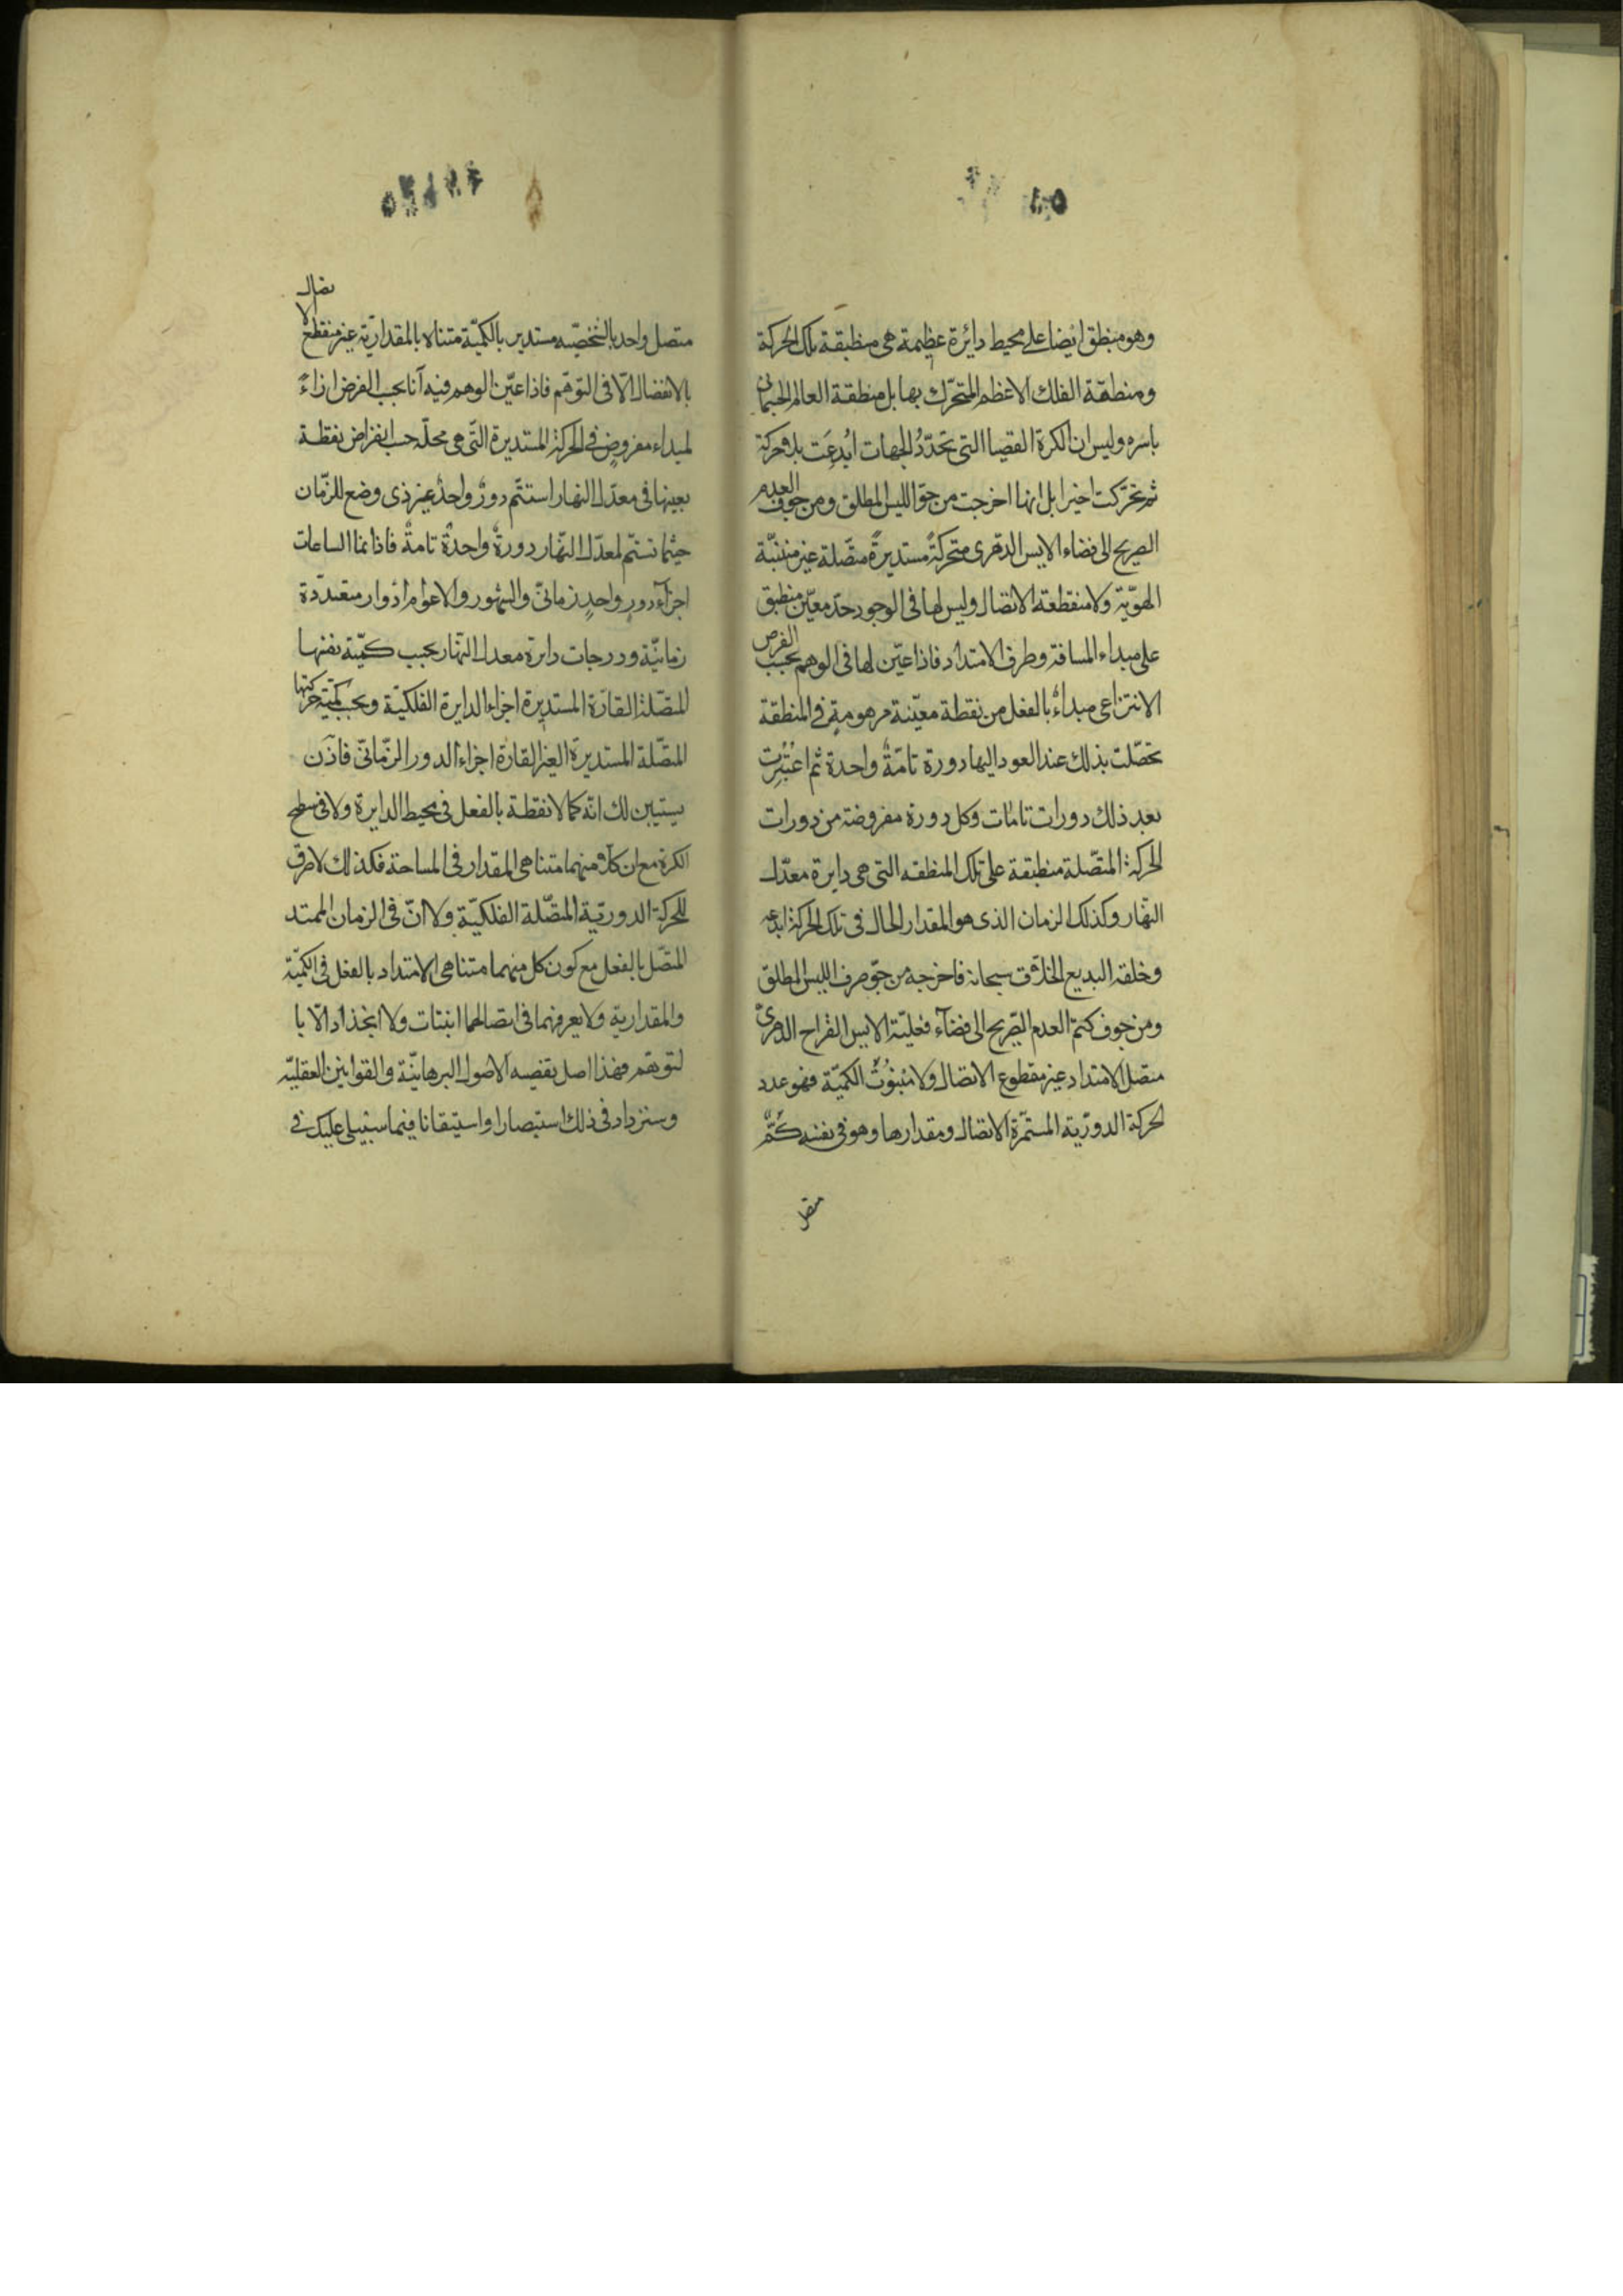 وهو منطبق ايضا على محيط دائرة عظيمة هى منطبقة تلك الحركة
ومنطقة الفلك الاعظم المتحرّك بها بل منطقة العالم الجسمانى
باسره وليس ان الكرة القصيا التى تحدّدُ الجهات اُبدِعَت بلا حركة
ثم تحرّكت اخيرا بل انها اخرجت من جوّ الليس المطلق ومن جوف العدم
الصريح الى فضاء الايس الدهرى متحركةً مستديرةً متّصلة غير منبتّة
الهويّة ولا منقطعة الاتصال وليس لها فى الوجود حدّ معيّن منطبق
على مبداء المسافة وطرف الامتداد فاذا عيّن لها فى الوهم بحسب الفرض
الانتزاعى مبداءٌ بالفعل من نقطة معيّنة موهومةٍ فى المنطقة
تحصّلت بذلك عند العود اليها دورة تامّةٌ واحدة ثم اعتُبِرت
بعد ذلك دورات تامّات وكل دورة مفروضة من دورات
الحركة المتّصلة منطبقة على تلك المنطقه التى هى دايرة معدّل
النهار وكذلك الزمان الذى هو المقدار الحال فى تلك الحركة ابدعه
وخلقه البديع الخلّاق سبحانه فاخرجه من جوّ صرف الليس المطلق
ومن جوف كتم العدم الصّريح الى فضآء فعليّة الايس القراح الدهرىّ
متصل الامتداد غير مقطوع الاتصال ولا مبتوُت الكميّة فهو عدد
الحركة الدوريّة المستمّرة الاتصال ومقدارها وهو فى نفسه كمٌّ
متصل
متصل واحد بالشخصيّه مستدير بالكميّة متناه بالمقداريّة غير منقطع الاتصال
بالانفصال الّا فى التوهّم فاذا عيّن الوهم فيه آنا بحسب الفرض ازاءً
لمبداء مفروضٍ فى الحركة المستديرة التّى هى محلّه حسب انفراض نقطة
بعينها فى معدّل النهار استتمّ دورٌ واحدٌ غير ذى وضع للزّمان
حيثما تستتم لمعدّل النّهار دورةٌ واحدةٌ تامةٌ فاذا انما الساعات
اجزآء دورٍ واحدٍ زمانىّ والشهور والاعوام ادوار متعدّدة
زمانيّة ودرجات دايرة معدل النّهار بحسب كميّة نفسها
المتّصلة القارّة المستديرة اجزاء الدايرة الفلكيّة وبحسب كميّة حركتها
المتّصلة المستديرة الغير القارّة اجزاء الدور الزّمانىّ فاذَن
يستبين لك انّه كما لا نقطة بالفعل فى محيط الدايرة ولا فى سطح
الكرة مع ان كلّا منهما متناهى المقدار فى المساحة فكذلك لا طرف
للحركة الدوريّة المتّصلة الفلكيّة ولا انّ فى الزمان الممتد
المتّصل بالفعل مع كون كل منهما متناهى الامتداد بالفعل فى الكميّة
والمقدارية ولا يعرضهما فى اتصالهما انبتات ولا انجذاذ الّا با
لتوهّم فهذا اصل تقضيه الاصول البرهانيّة والقوانين العقليّه
وستزداد فى ذلك استبصارا واستيقانا فيما سيتلى عليك فى